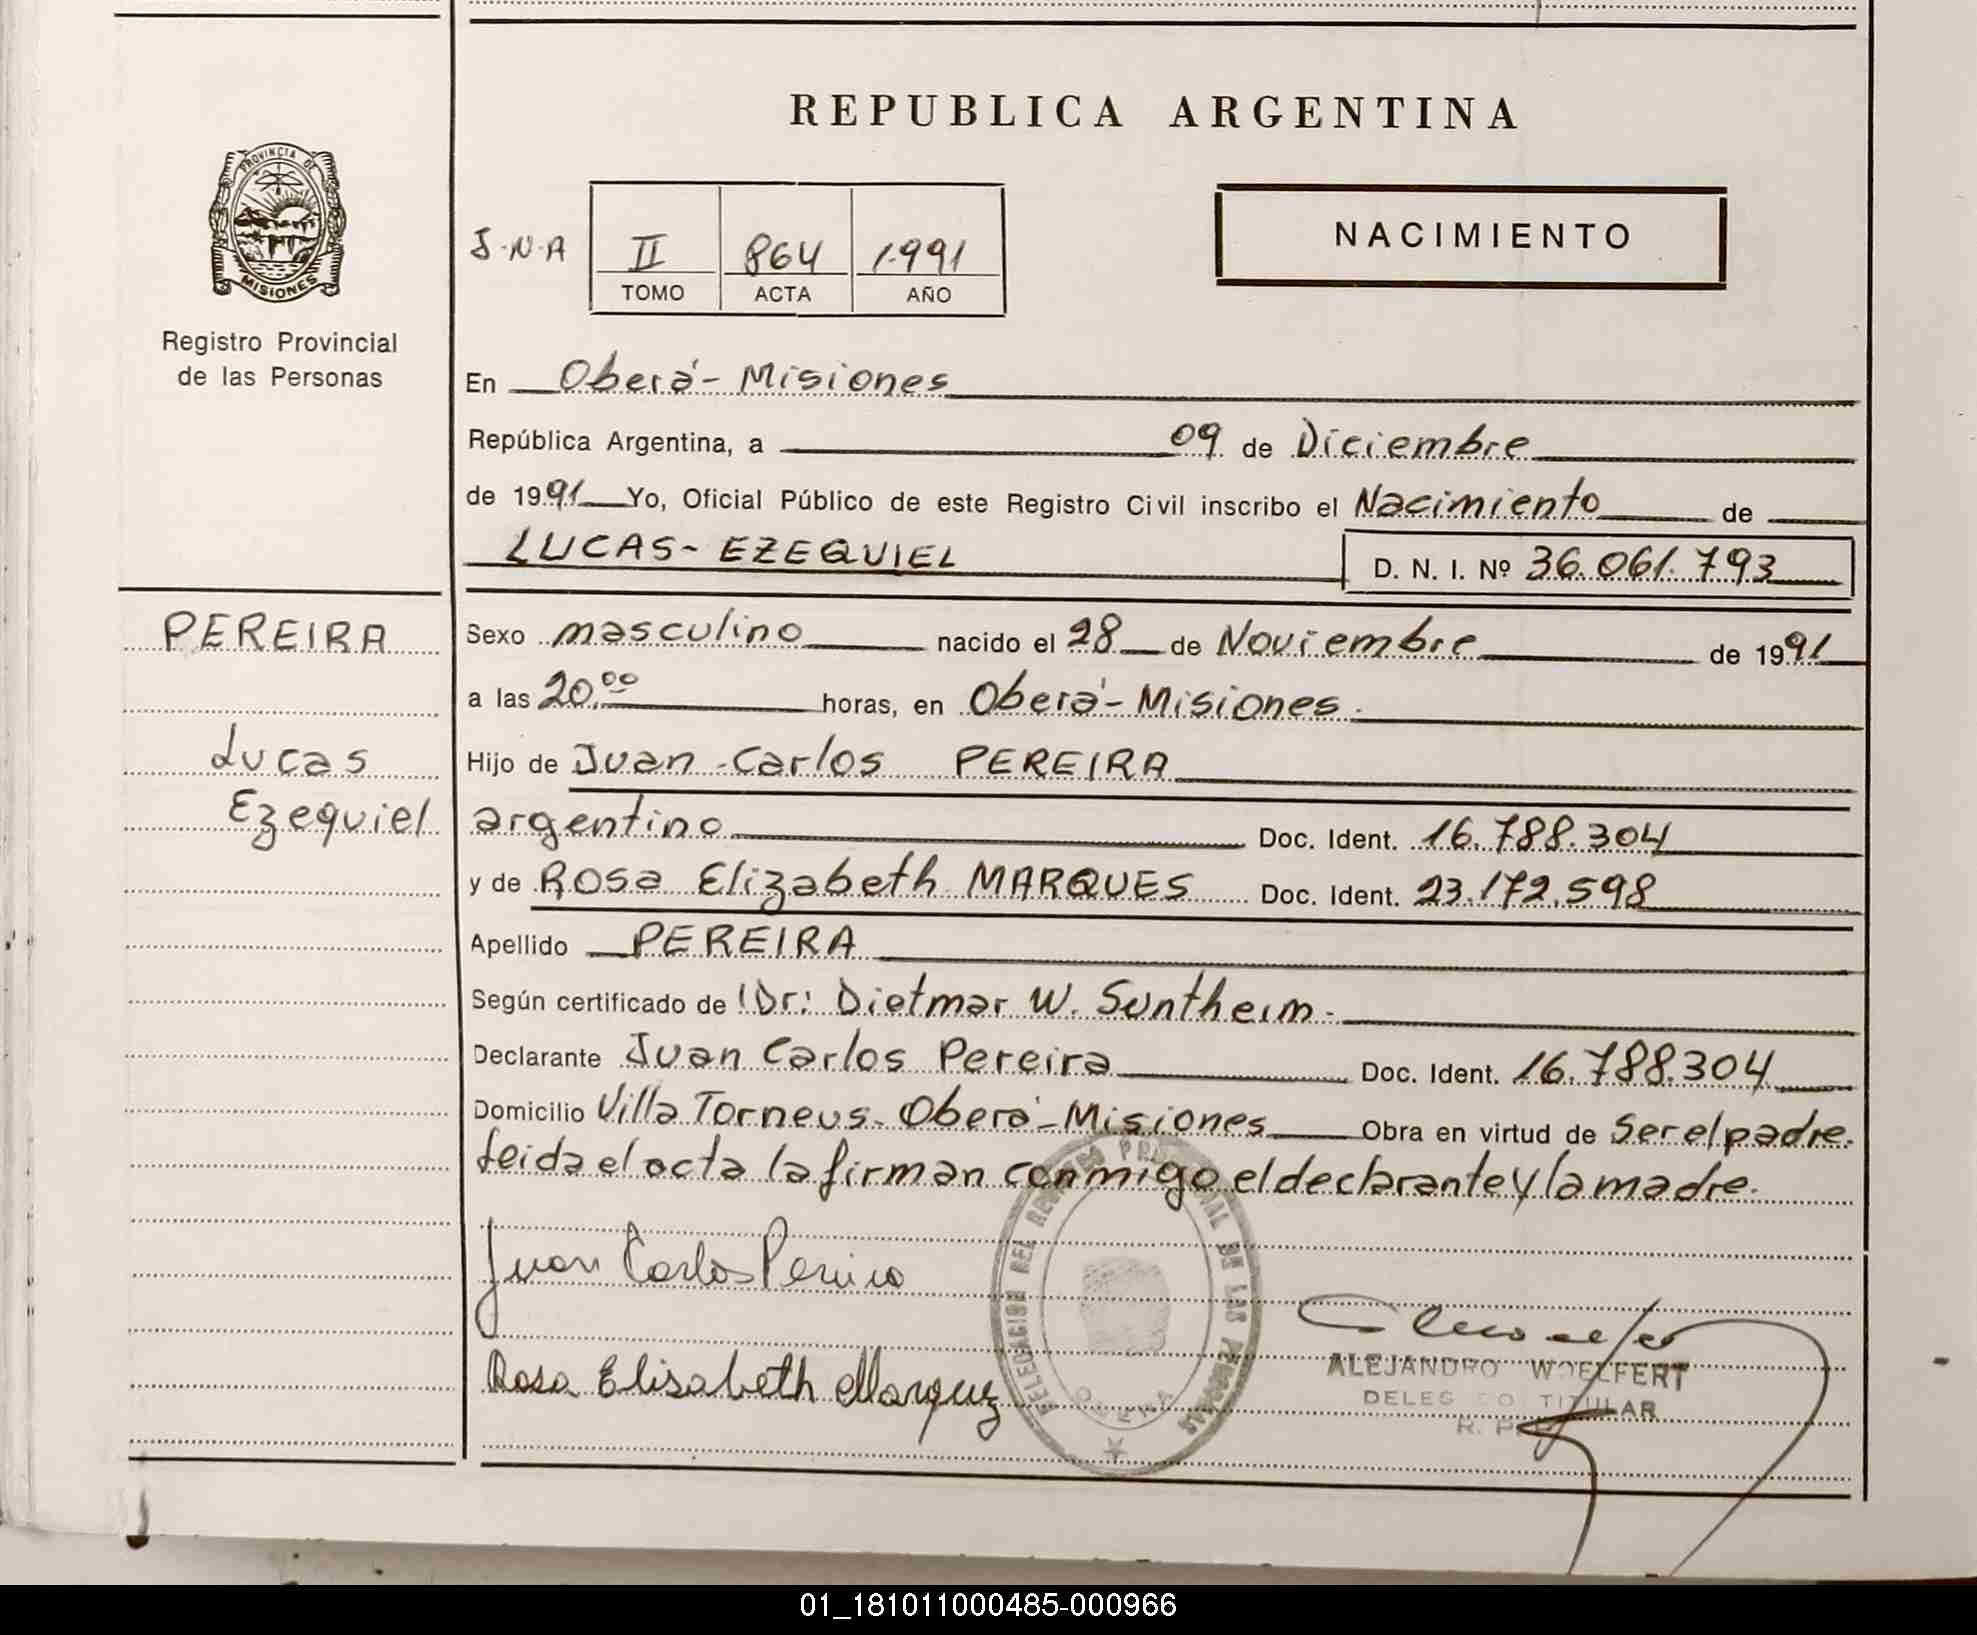 REPUBLICA ARGENTINA
PROVINCIA DE
MISIONES
Registro Provincial
de las Personas
J-N-A II 864 1.991
TOMO ACTA AÑO
NACIMIENTO
En Oberá - Misiones
República Argentina, a 09 de Diciembre
de 1991 Yo, Oficial Público de este Registro Civil inscribo el Nacimiento de
LUCAS - EZEQUIEL D. N. I. Nº 36.061.793
PEREIRA
Lucas
Ezequiel
Sexo masculino nacido el 28 de Noviembre de 1991
a las 20.00 horas, en Oberá - Misiones.
Hijo de Juan - Carlos PEREIRA
argentino Doc. Ident. 16.788.304
y de Rosa Elizabeth MARQUES Doc. Ident. 23.172.598
Apellido PEREIRA
Según certificado de Dr: Dietmar W. Suntheim.-
Declarante Juan Carlos Pereira Doc. Ident. 16.788.304
Domicilio Villa Torneus - Oberá - Misiones Obra en virtud de Ser el padre.
Leida el acta la firman conmigo el declarante y la madre.
Juan Carlos Pereira
Rosa Elisabeth Marquez
DELEGACION DEL REGISTRO PROVINCIAL DE LAS PERSONAS
OBERA
ALEJANDRO WOELFERT
DELEGADO TITULAR
01_181011000485-000966